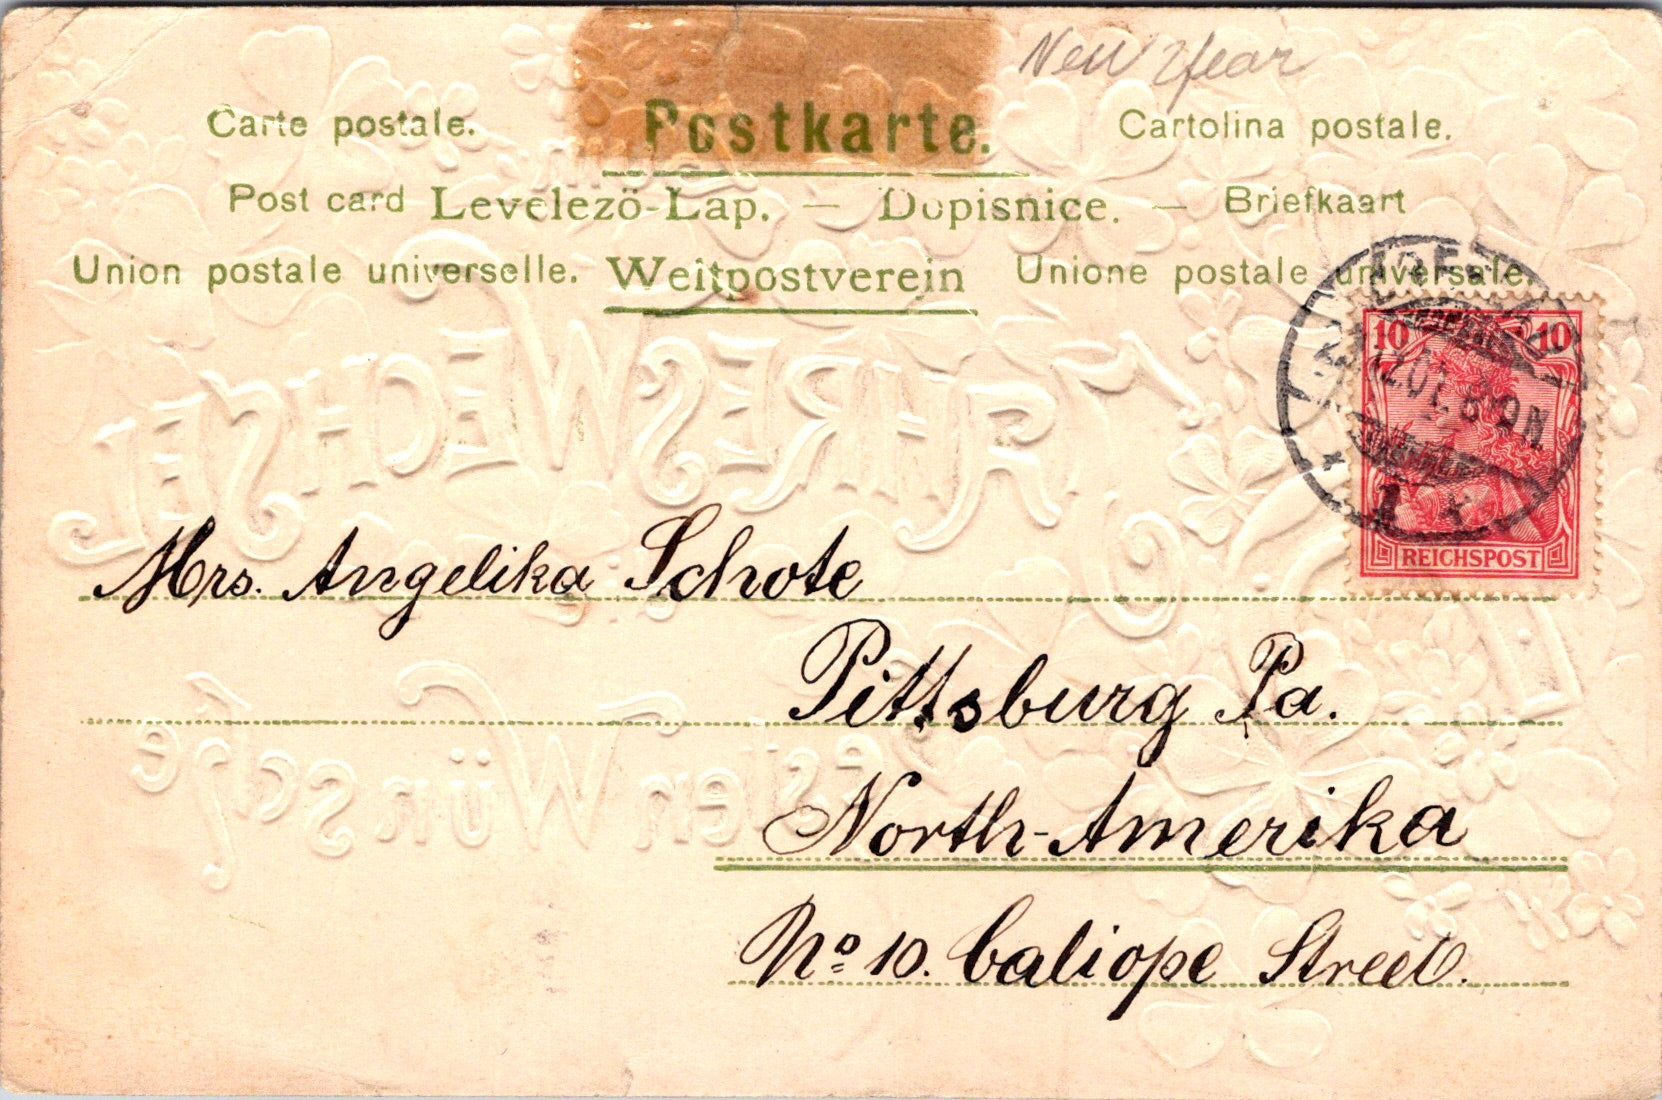 New Year
Carte postale. Postkarte. Cartolina postale.
Post card Levelezö-Lap. — Dopisnice. — Briefkaart
Union postale universelle. Weltpostverein Unione postale universale.
10 10
12 01 8-9N
1
REICHSPOST
JAHRESWECHSEL
Mrs. Angelika Schote
Pittsburg Pa.
besten Wünsche
North-Amerika
No 10. Caliope Street.